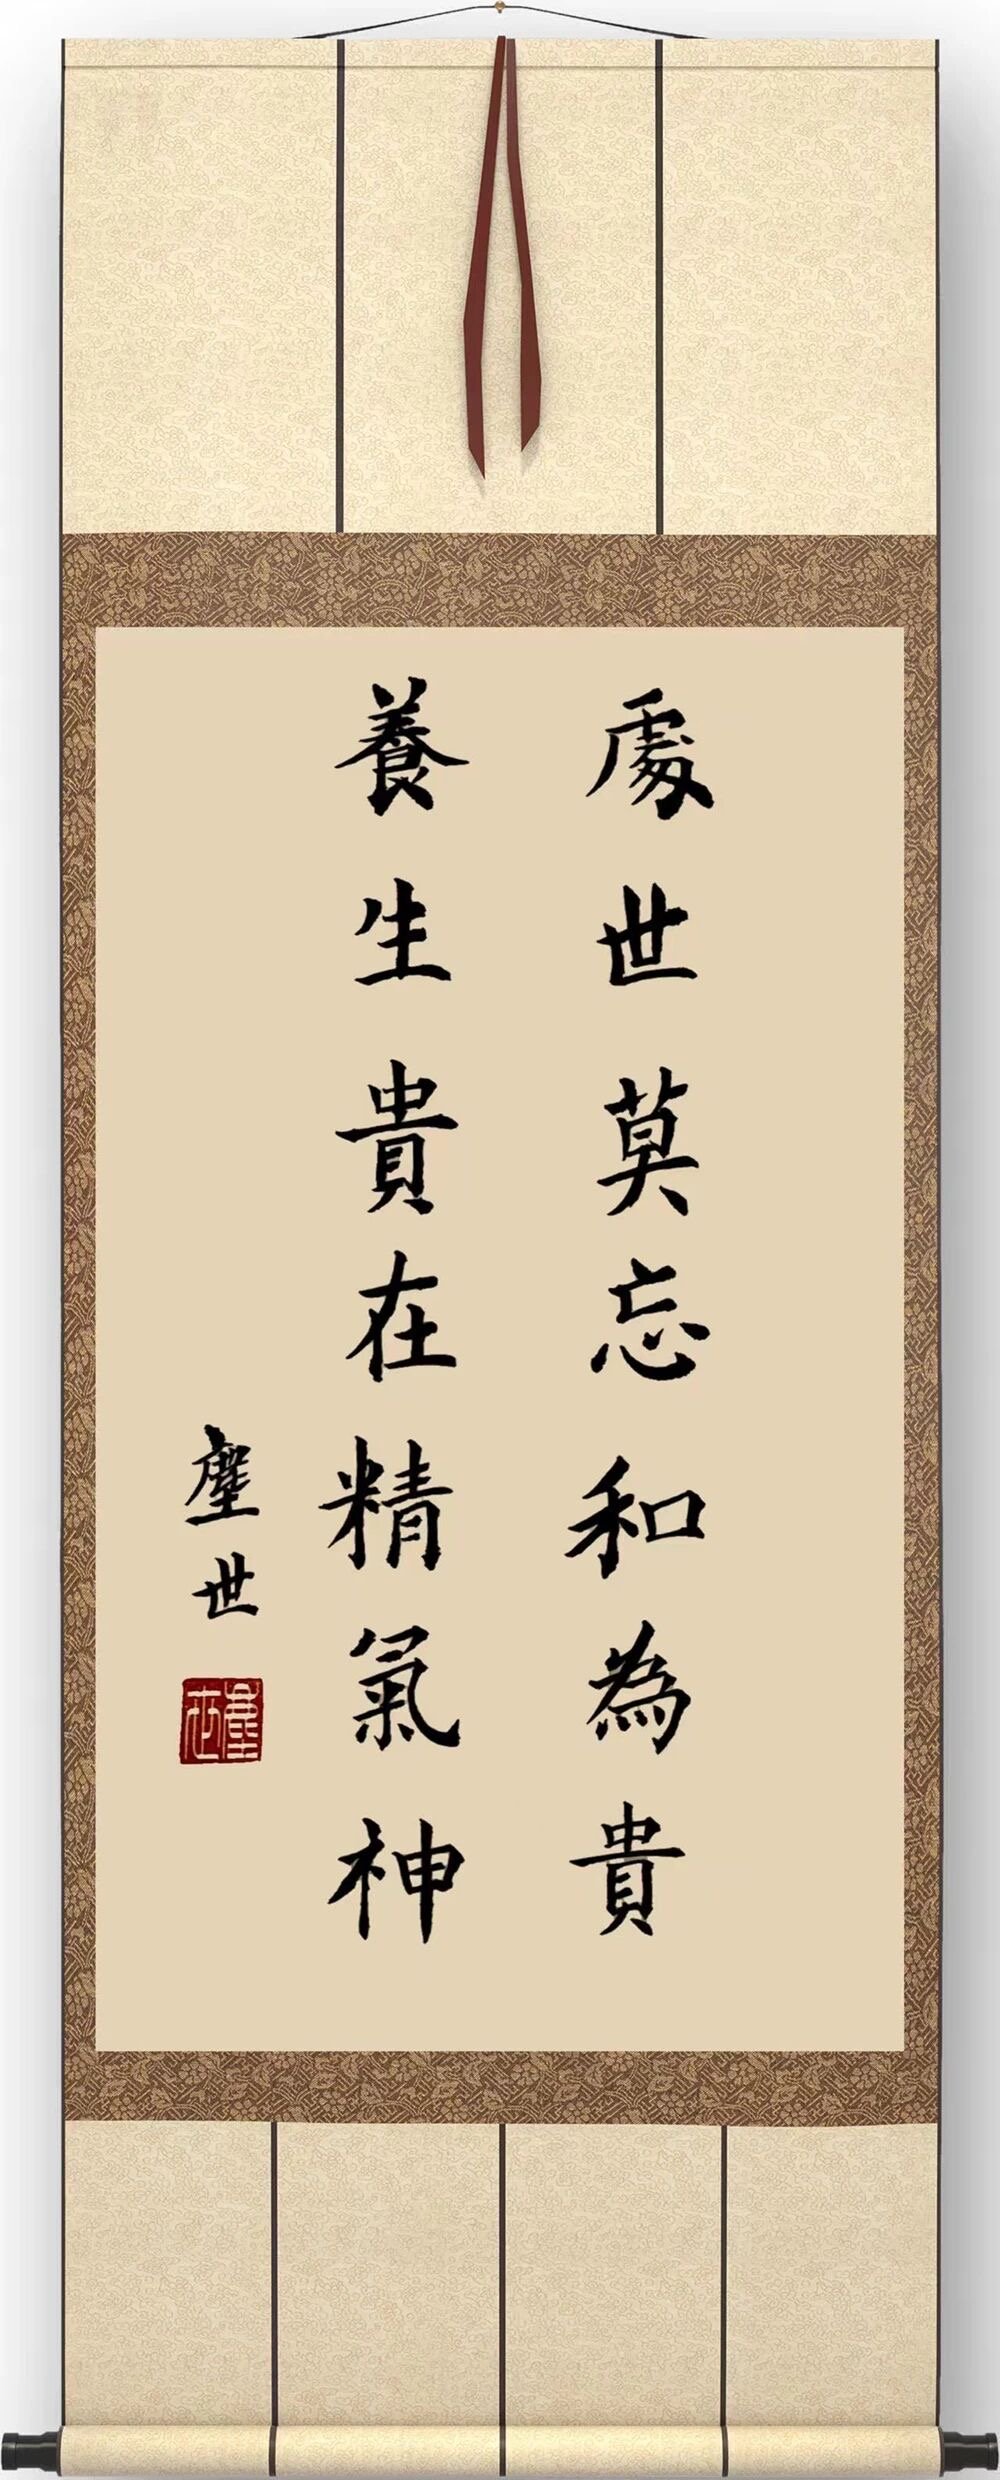 處世莫忘和為貴
養生貴在精氣神
塵世
塵世